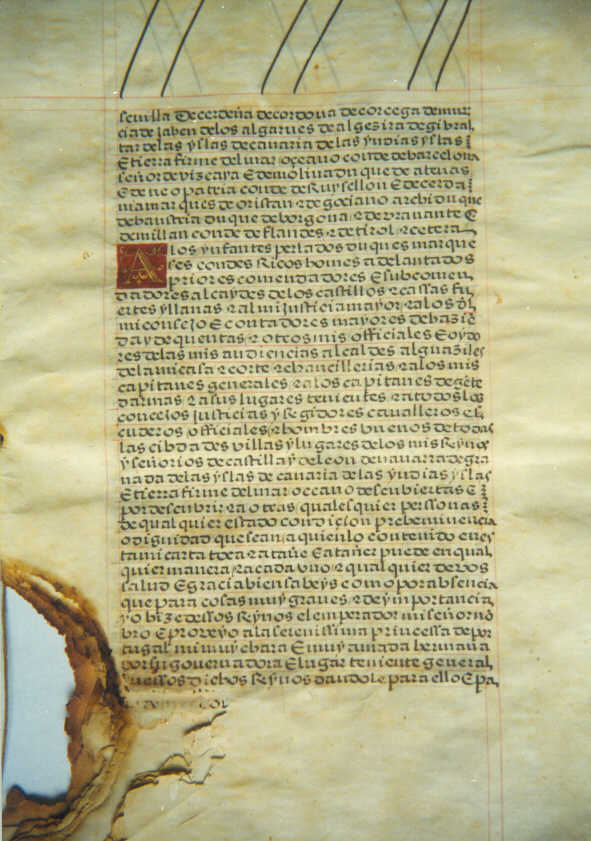 sevilla de cerdeña de cordova de corcega de mur
cia de jahen de los algarves de algezira de gibral
tar de las yslas de canaria de las yndias yslas
E tierra firme del mar oçeano conde de barcelona
señor de vizcaya E de molina duque de atenas
E de neopatria conde de Ruysellon E de cerda
nia marques de oristan E de goçiano archiduque
de haustria duque de borgoña E de bravante E
de millan conde de flandes E de tirol Ecetera
A los ynfantes perlados duques marque
ses condes Ricos homes adelantados
priores comendadores E subcomen
dadores alcaydes de los castillos E cassas fu
ertes y llanas E al mi justicia mayor E a los dl
mi consejo E contadores mayores de hazie
da y de quentas E otros mis officiales E oydo
res de las mis audiencias alcaldes alguaziles
de la mi casa E corte E chancillerias E a los mis
capitanes generales E a los capitanes de gete
darmas E a sus lugares tenientes E a todos los
concejos justicias y Regidores cavalleros es
cuderos officiales E hombres buenos de todas
las cibdades villas y lugares de los mis Reynos
y señorios de castilla y de leon de navarra de gra
nada de las yslas de canaria de las yndias yslas
E tierra firme del mar oçeano descubiertas E
por descubrir E a otras quales quier perssonas
de qual quier estado condiçion preheminencia
o dignidad que sean a quien lo contenido en es
ta mi carta toca E atañe E atañer puede en qual
quier manera E a cada uno E qual quier de vos
salud E gracia bien sabeys como por absencia
que para cosas muy graves E de ymportancia
yo hize dessos Reynos el emperador mi señor no
bro E proveyo a la serenissima princessa de por
tugal mi muy chara E muy amada hermana
por su governadora E lugar teniente general
dessos dichos Reynos dandole para ello E pa